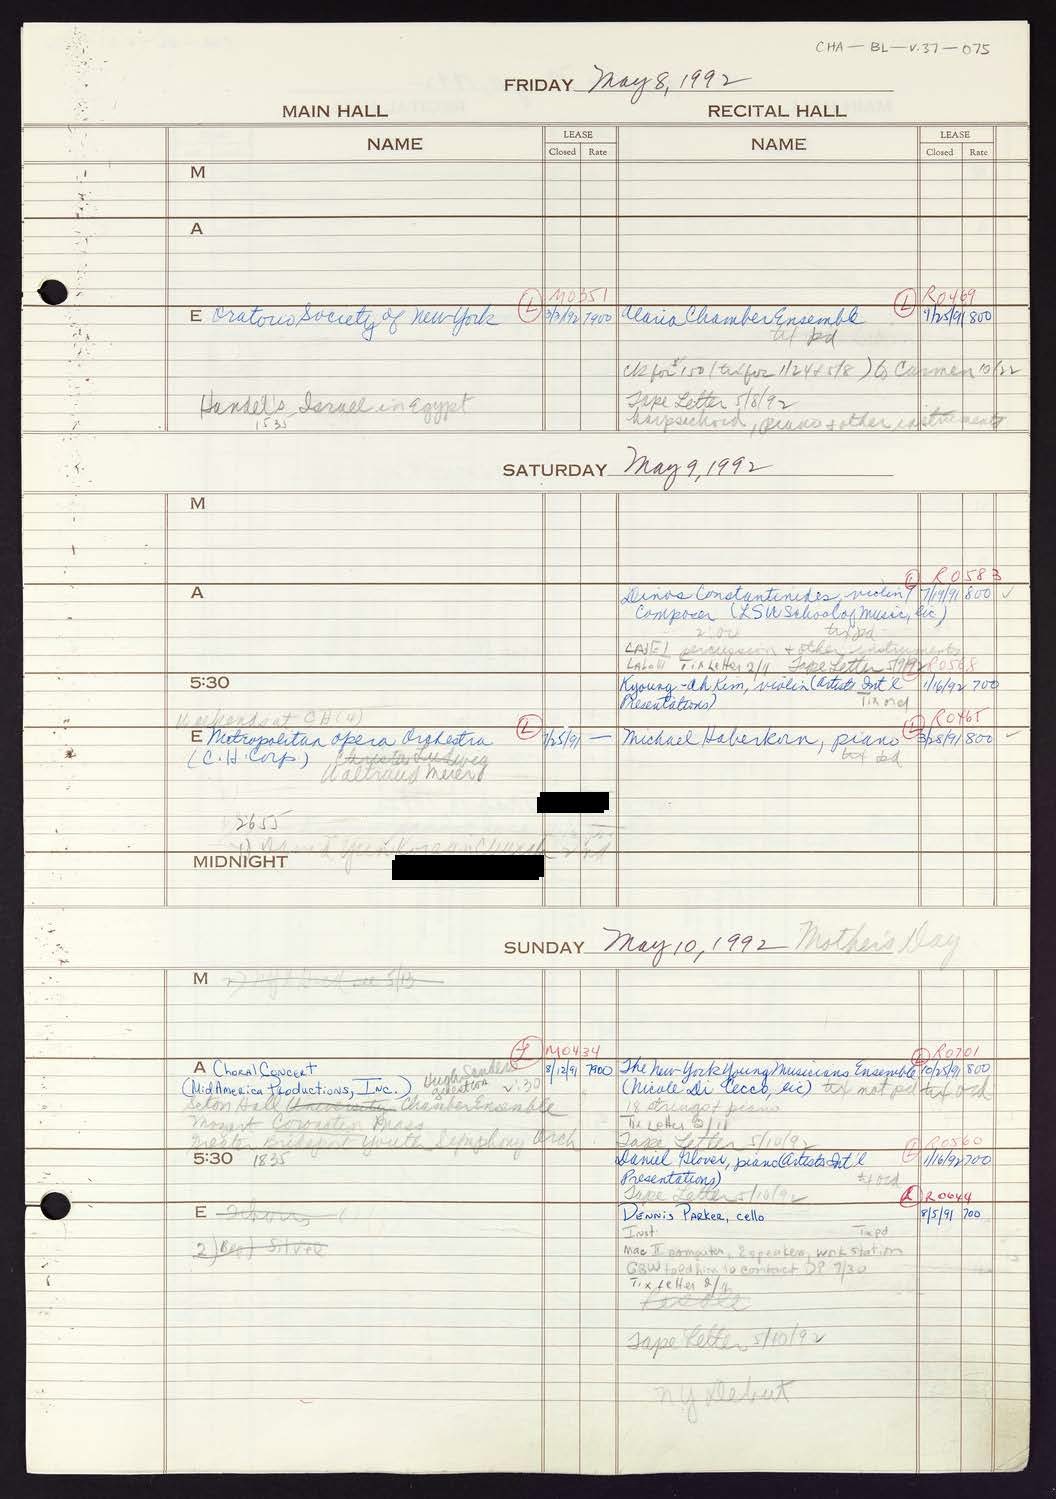 CHA-BL-V.37-075
FRIDAY May 8, 1992
MAIN HALL
RECITAL HALL
NAME
LEASE
Closed Rate
NAME
LEASE
Closed Rate
M
A
E Oratorio Society of New York
L M0351
3/3/92 7900
Handel's Israel in Egypt
1535
L R0469
Alaria Chamber Ensemble 1/25/91 800
tix pd
ck for $150 (tix for 1/24 + 5/8) to Carmen 10/22
Tape Letter 5/8/92
harpsichord, piano & other instruments
SATURDAY May 9, 1992
M
A
L R0583
Dinos Constantinides, violin/ 7/19/91 800 ✓
Composer (LSU School of Music, lic)
2:00 tix pd
percussion + other instruments
Tix Letter 2/11 Tape Letter 5/9/92
5:30
L R0568
Kyoung-Ah Kim, violin (Artists Int'l 1/16/92 700
Presentations)
Tix ord
Weekends at CH (4)
E Metropolitan Opera Orchestra L 1/25/91 —
(C.H. Corp) Christa Ludwig
Waltraud Meier
2655
L R0465
Michael Haberkorn, piano 3/28/91 800 ✓
tix pd
MIDNIGHT
SUNDAY May 10, 1992 Mother's Day
M
L M0434
A Choral Concert 8/12/91 7900
(MidAmerica Productions, Inc.)
Seton Hall University Chamber Ensemble
Mozart Coronation Mass
Greater Bridgeport Youth Symphony Orch
L R0701
The New York Young Musicians Ensemble 10/25/91 800
(Nicole Di Cecco, lic) tix not pd tix ord
18 strings + piano
Tix Letter 2/11
Tape Letter 5/10/92
5:30 1835
L R0560
Daniel Glover, piano (Artists Int'l 1/16/92 700
Presentations)
tix ord
Tape Letter 5/10/92
E
2)
L R0644
Dennis Parker, cello 8/5/91 700
Inst Tix pd
Mac II computer, 2 speakers, work station
GBW told him to contact DP 7/30
Tix Letter 2/11
Tape Letter 5/10/92
NY Debut